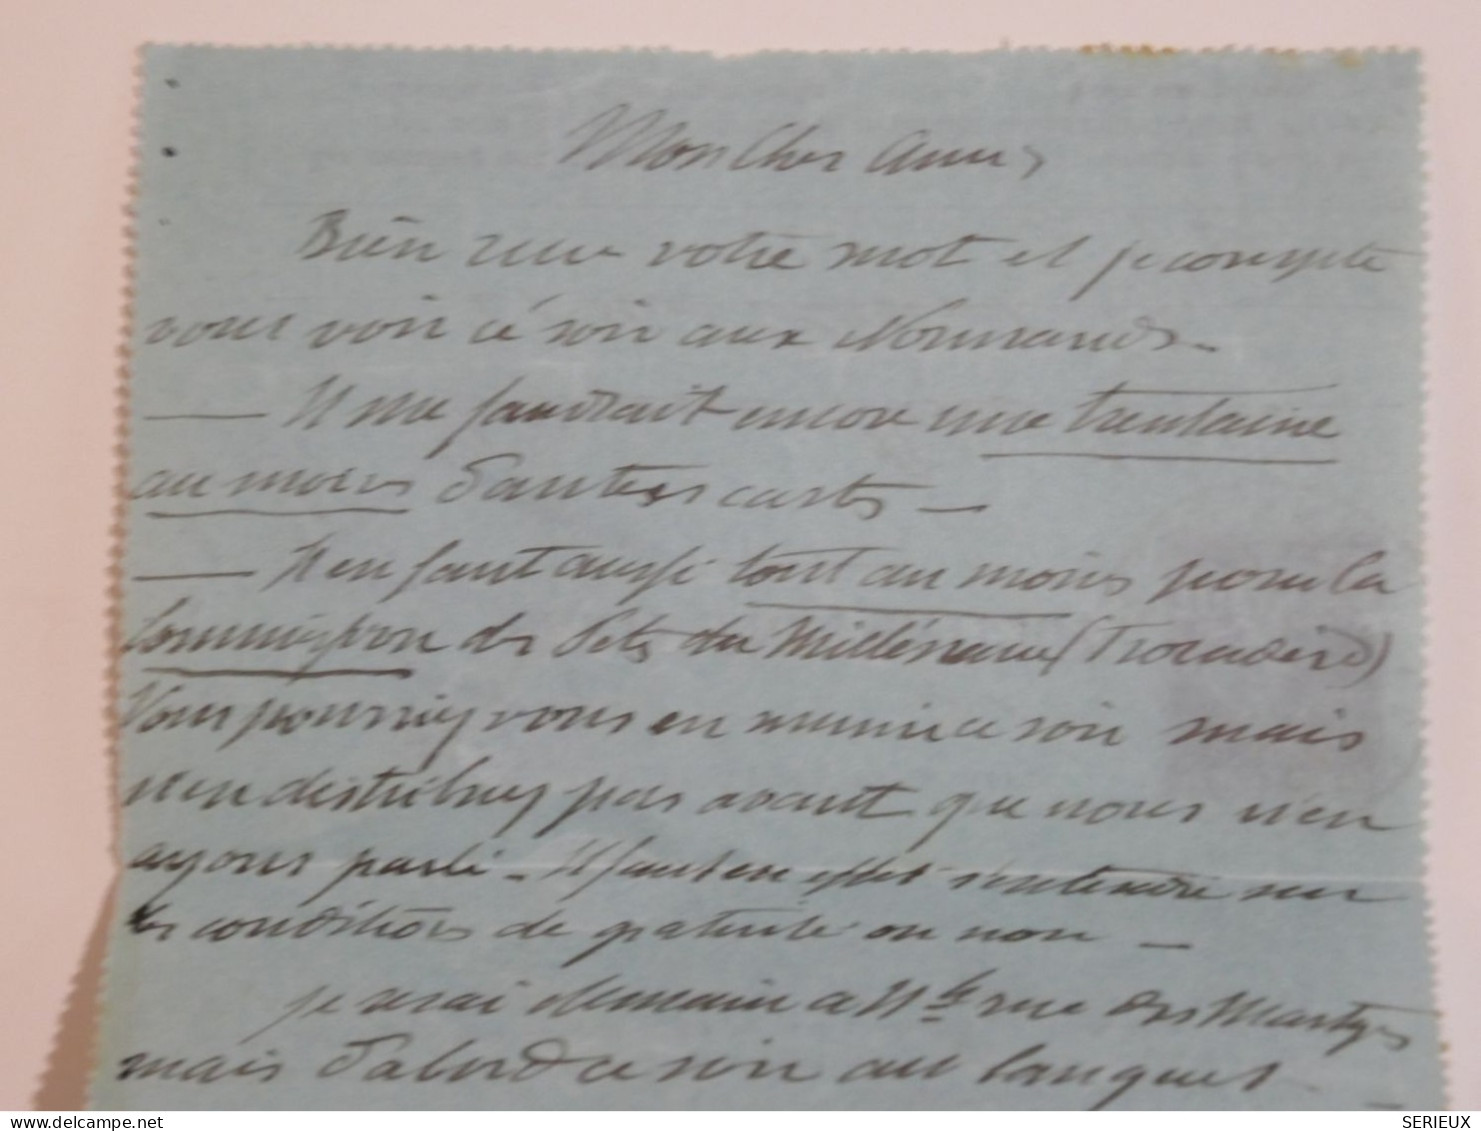 Mon Cher Ami,
Bien reçu votre mot et je compte
vous voir ce soir aux Normands.
— Il me faudrait encore une trentaine
au moins d'autres cartes —
— Il en faut aussi tout au moins pour la
Commission des fêtes du Millénaire (Trocadéro)
Vous pourriez vous en munir ce soir mais
n'en distribuez pas avant que nous n'en
ayons parlé. Il faut en effet s'entendre sur
les conditions de gratuité ou non —
je serai demain a 11h rue des Martyrs
mais d'abord ce soir au banquet —
delcampe.net
SERIEUX